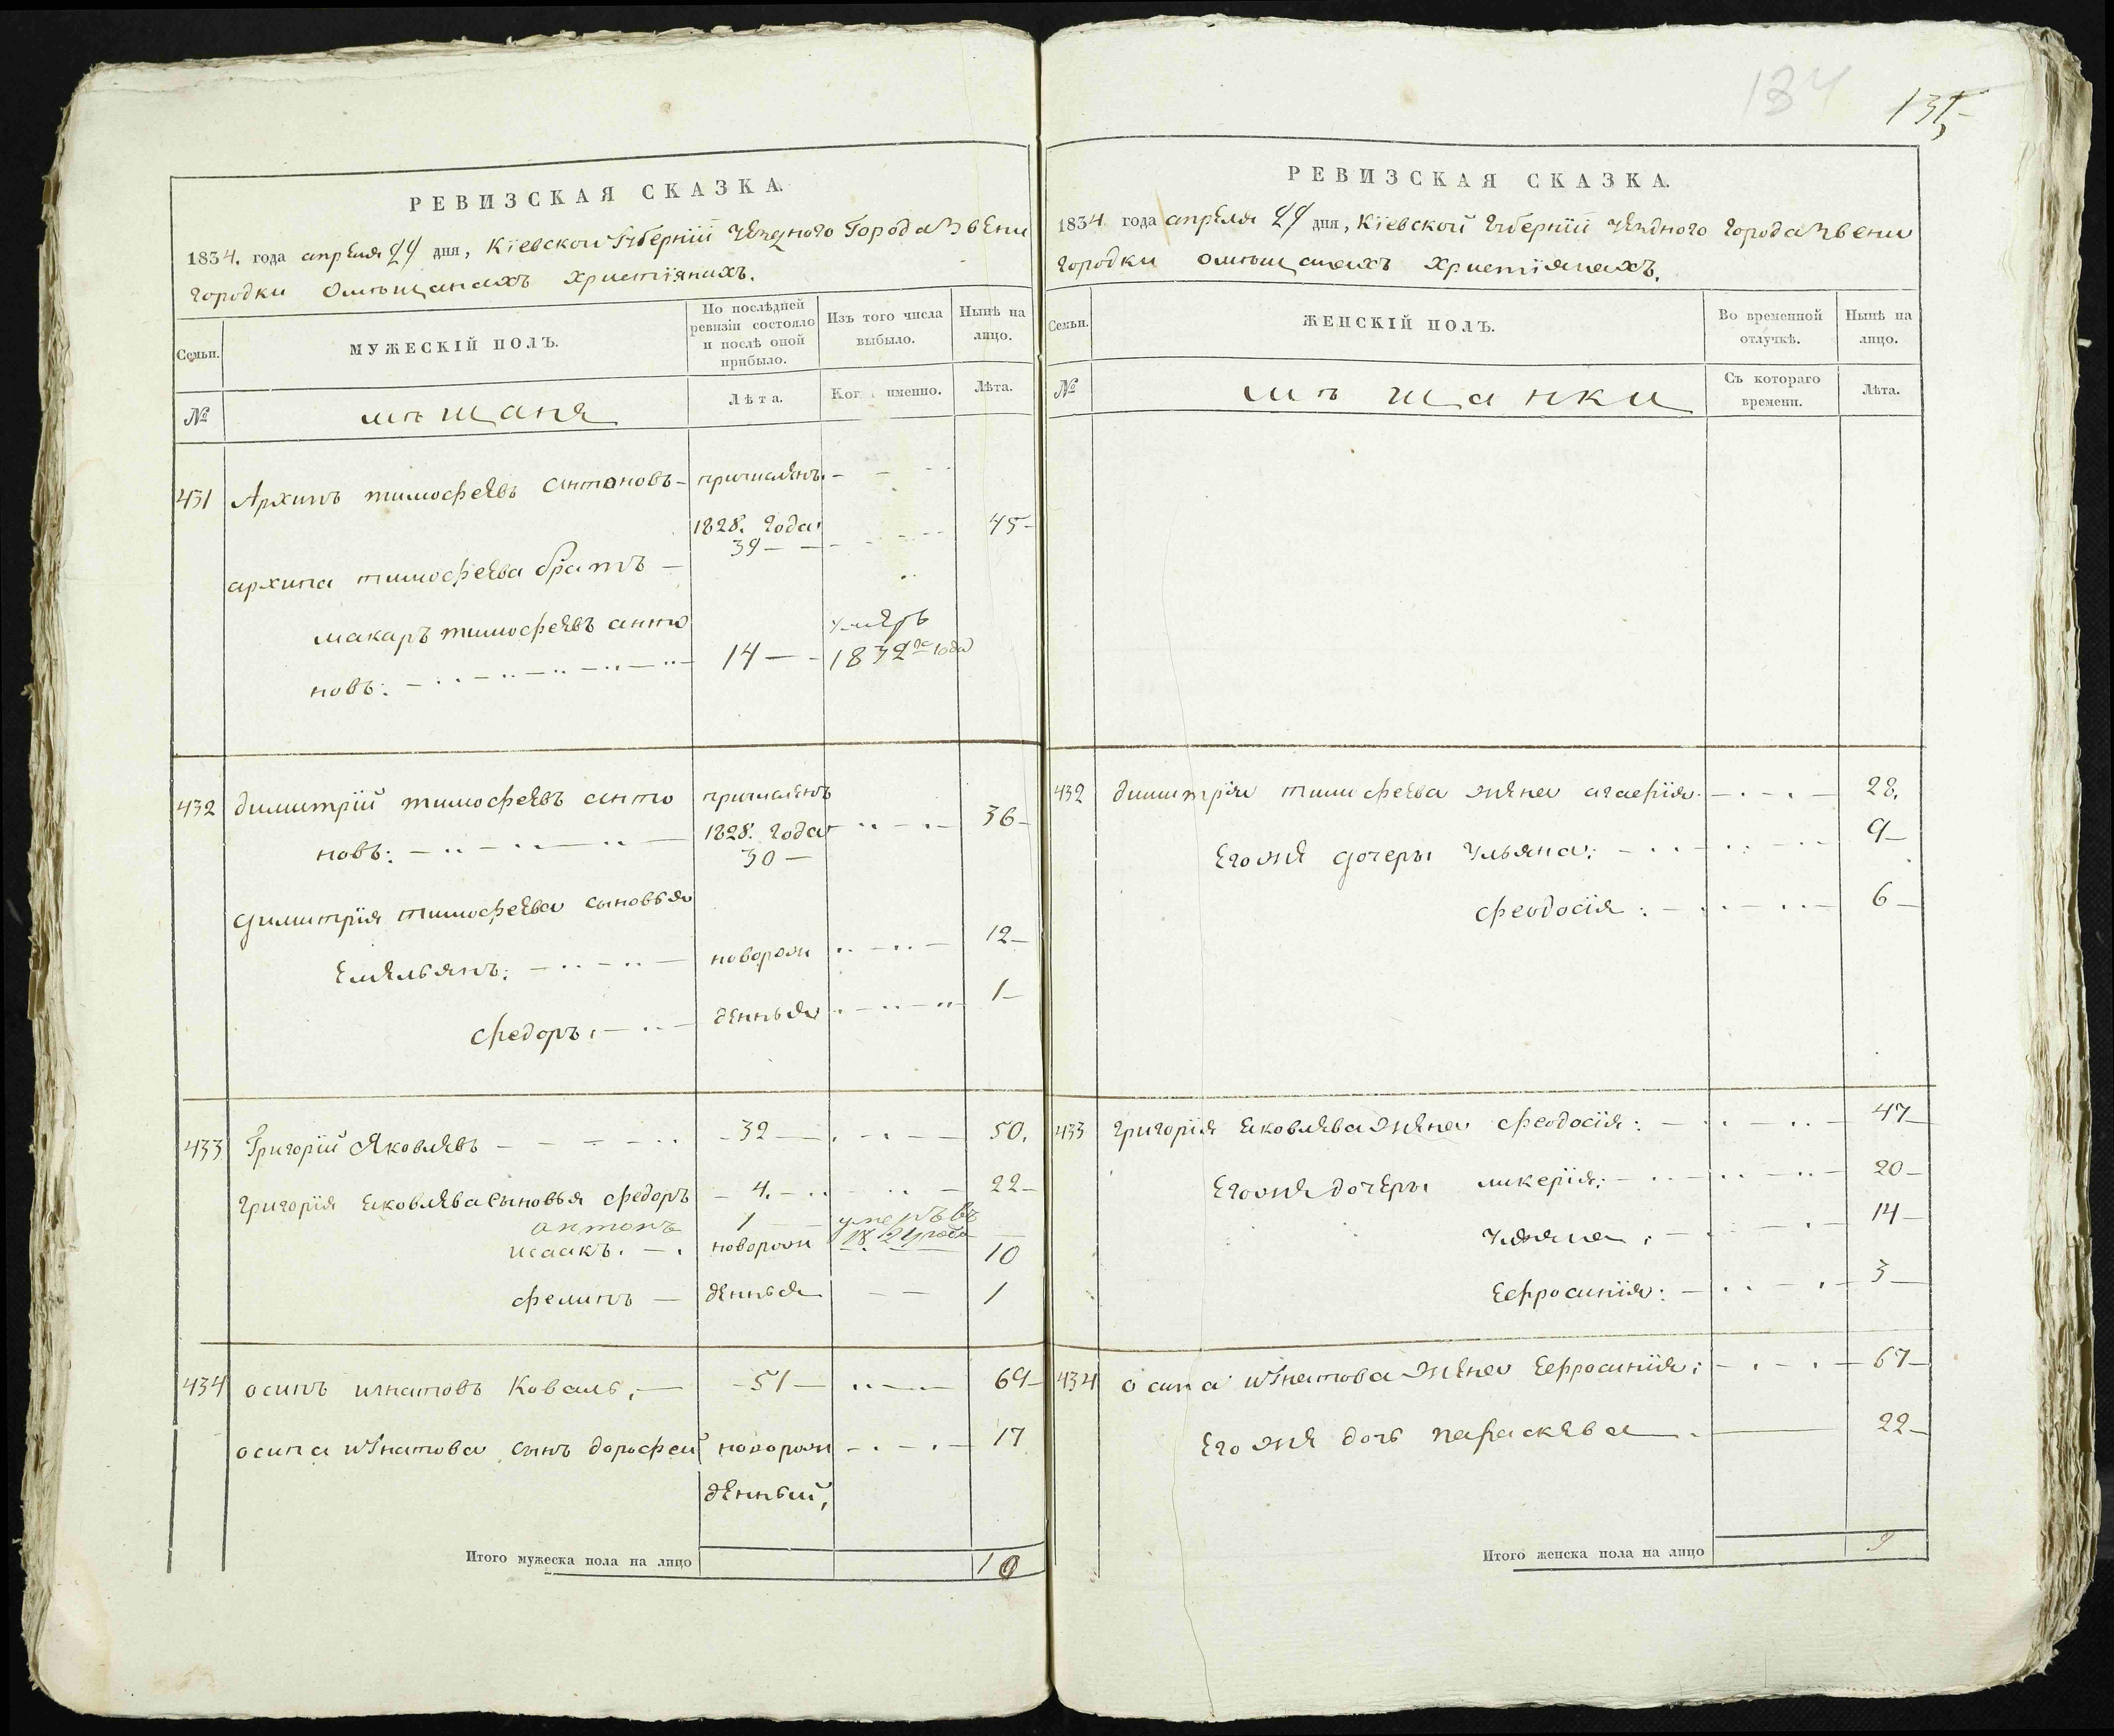 134
135
РЕВИЗСКАЯ СКАЗКА.
1834. года апреля 24 дня, Кіевской Губерніи уезднаго Города Звени
городки о мѣщанахъ христіянахъ.
Семьи.
МУЖЕСКІЙ ПОЛЪ.
По послѣдней ревизіи состояло и послѣ оной прибыло.
Изъ того числа выбыло.
Нынѣ на лицо.
№
мѣщаня
Лѣта.
Когда именно.
Лѣта.
431 Архипъ тимофеевъ антоновъ - причисленъ. -
1828. года 45 -
39 - -
архипа тимофеева братъ -
макаръ тимофеевъ анто умеръ
новъ: - 14 - - 1832го года
432 димитрій тимофеевъ анто причисленъ
новъ: - 1828. года 36 -
30 -
димитрія тимофеева сыновья
Емельянъ: - новорож 12 -
федоръ: - денныя 1 -
433 Григорій Яковлевъ - 32 - 50.
григорія яковлева сыновья федоръ - 4. - 22 -
антонъ 1 - умеръ въ
исаакъ. - новорож 1824 года 10
филипъ - денныя - - 1
434 осипъ игнатовъ Коваль, - - 51 - 69 -
осипа игнатова сынъ дорофей новорож - 17
денный,
Итого мужеска пола на лицо 10
РЕВИЗСКАЯ СКАЗКА.
1834 года апреля 24 дня, Кіевской Губерніи уездного города Звени
городки о мѣщанахъ христіянахъ.
Семьи.
ЖЕНСКІЙ ПОЛЪ.
Во временной отлучкѣ.
Нынѣ на лицо.
№
мѣщанки
Съ котораго времени.
Лѣта.
432 димитрія тимофеева жена агафія - 28.
Его же дочеры Ульяна: - 9 -
феодосія: - 6 -
433 григорія яковлева жена феодосія: - 47
Его же дочеры ликерія: - 20 -
Ульяна, - 14 -
Ефросинія: - 3 -
434 осипа игнатова жена Ефросинія: - 67 -
Его же дочь параскева - 22 -
Итого женска пола на лицо 9